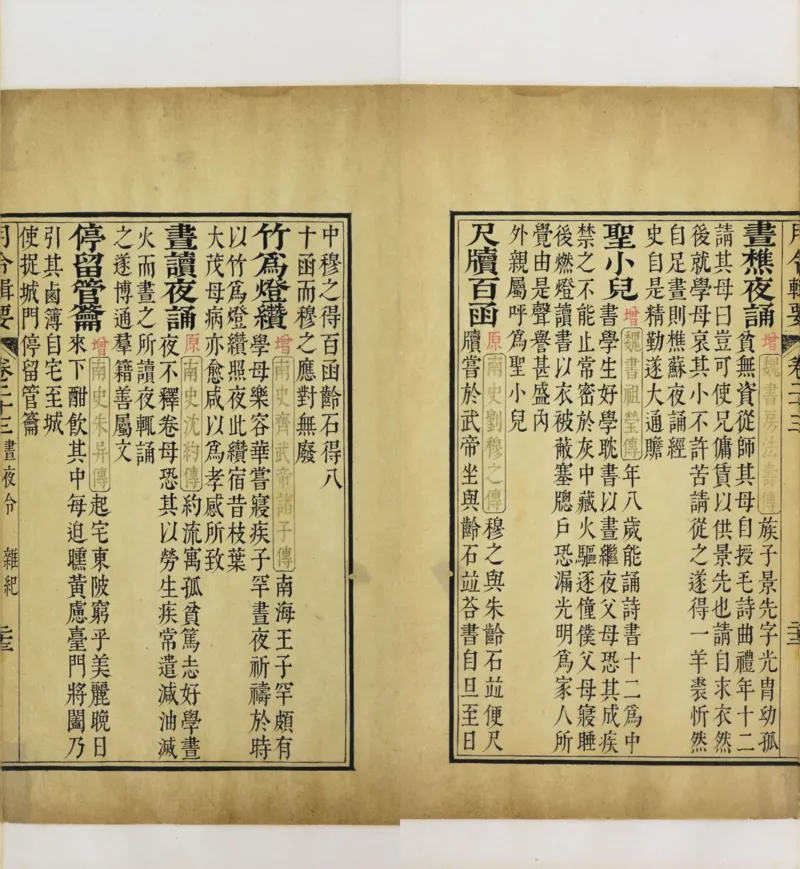 月令輯要 卷二十三
晝樵夜誦 增 魏書房法壽傳 族子景先字光冑幼孤
貧無資從師其母自授毛詩曲禮年十二
請其母曰豈可使兄傭賃以供景先也請自求衣然
後就學母哀其小不許苦請從之遂得一羊裘忻然
自足晝則樵蘇夜誦經
史自是精勤遂大通贍
聖小兒 增 魏書祖瑩傳 年八歲能誦詩書十二爲中
書學生好學耽書以晝繼夜父母恐其成疾
禁之不能止常密於灰中藏火驅逐僮僕父母寢睡
後燃燈讀書以衣被蔽塞牕戶恐漏光明爲家人所
覺由是聲譽甚盛內
外親屬呼爲聖小兒
尺牘百函 原 南史劉穆之傳 穆之與朱齡石竝便尺
牘嘗於武帝坐與齡石竝荅書自旦至日
中穆之得百函齡石得八
十函而穆之應對無廢
竹爲燈纘 增 南史齊武帝諸子傳 南海王子罕頗有
學母樂容華嘗寢疾子罕晝夜祈禱於時
以竹爲燈纘照夜此纘宿昔枝葉
大茂母病亦愈咸以爲孝感所致
晝讀夜誦 原 南史沈約傳 約流寓孤貧篤志好學晝
夜不釋卷母恐其以勞生疾常遣減油滅
火而晝之所讀夜輒誦
之遂博通羣籍善屬文
停留管籥 增 南史朱异傳 起宅東陂窮乎美麗晚日
來下酣飲其中每迫曛黃慮臺門將闔乃
引其鹵簿自宅至城
使捉城門停留管籥
月令輯要 卷二十三 晝夜令 雜紀